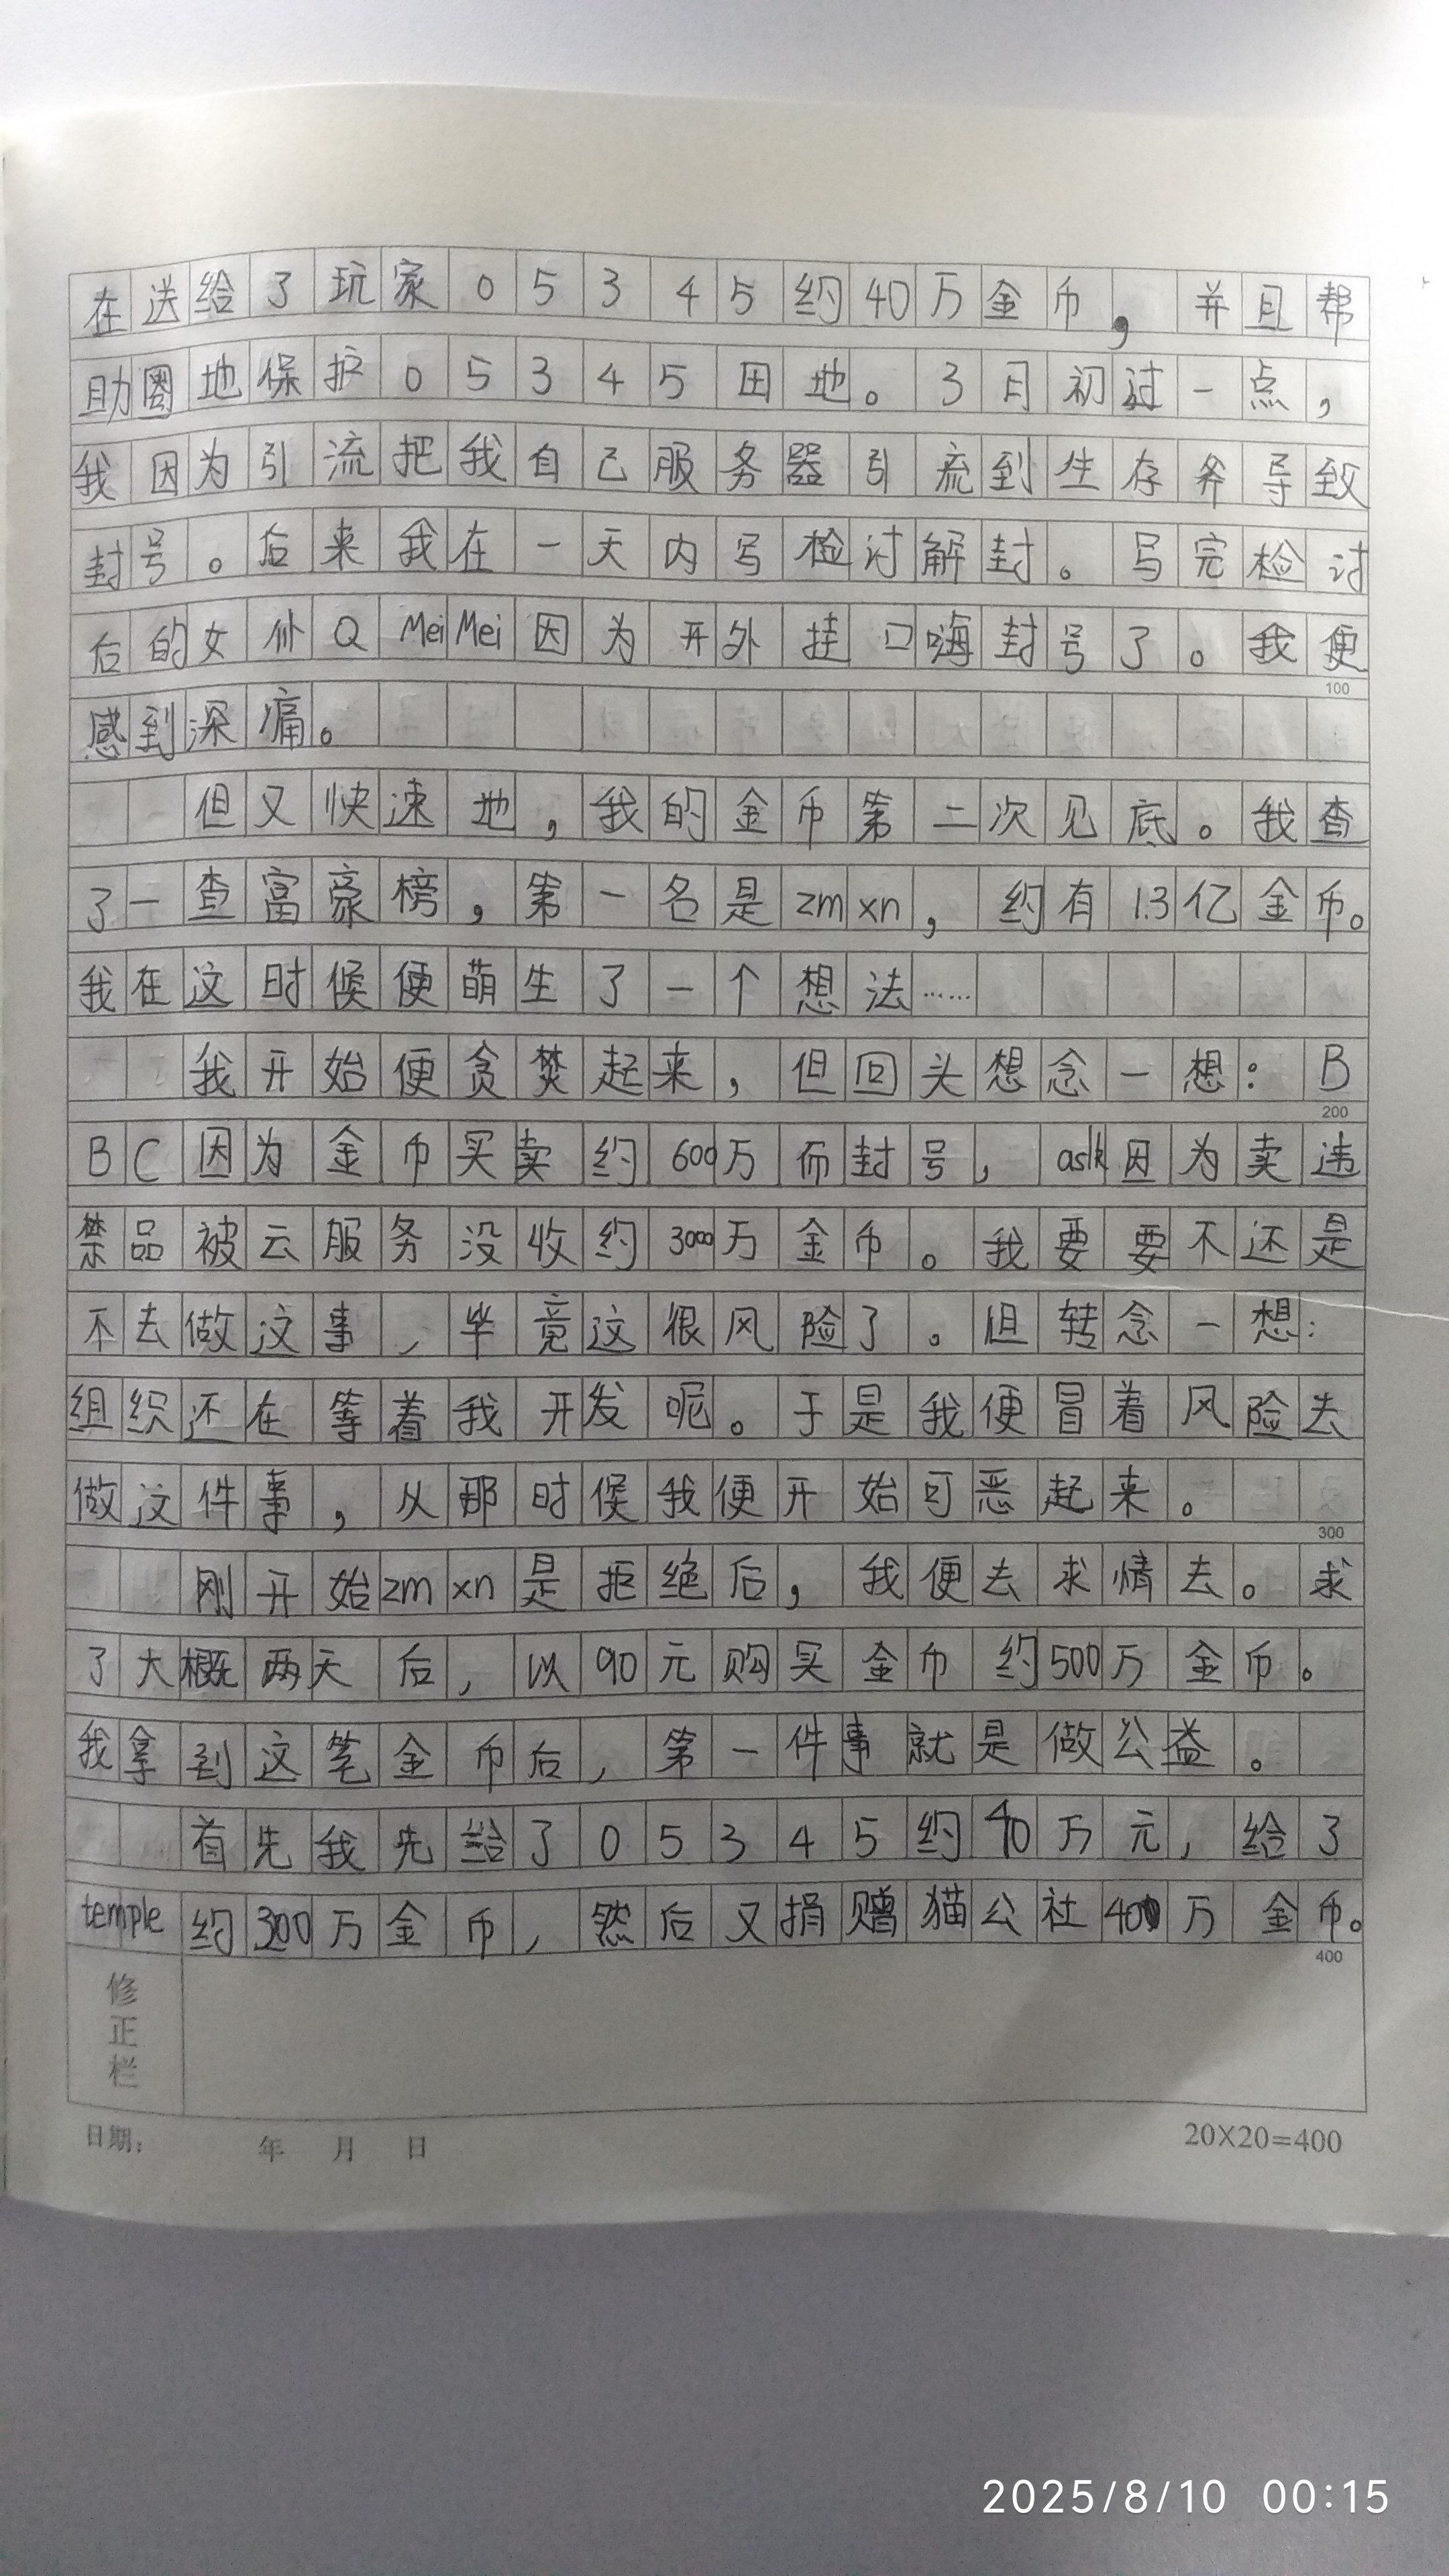 在送给了玩家05345约40万金币，并且帮
助圈地保护05345田地。3月初过一点，
我因为引流把我自己服务器引流到生存斧导致
封号。后来我在一天内写检讨解封。写完检讨
后的女仆QMeiMei因为开外挂口嗨封号了。我便
感到深痛。
但又快速地，我的金币第二次见底。我查
了一查富豪榜，第一名是zmxn，约有1.3亿金币。
我在这时候便萌生了一个想法……
我开始便贪焚起来，但回头想念一想：B
BC因为金币买卖约600万而封号，ask因为卖违
禁品被云服务没收约3000万金币。我要要不还是
不去做这事，毕竟这很风险了。但转念一想：
组织还在等着我开发呢。于是我便冒着风险去
做这件事，从那时候我便开始可恶起来。
刚开始zmxn是拒绝后，我便去求情去。求
了大概两天后，以90元购买金币约500万金币。
我拿到这笔金币后，第一件事就是做公益。
首先我先给了05345约40万元，给了
temple约300万金币，然后又捐赠猫公社400万金币。
100
200
300
400
修正栏
日期： 年 月 日 20×20=400
2025/8/10 00:15